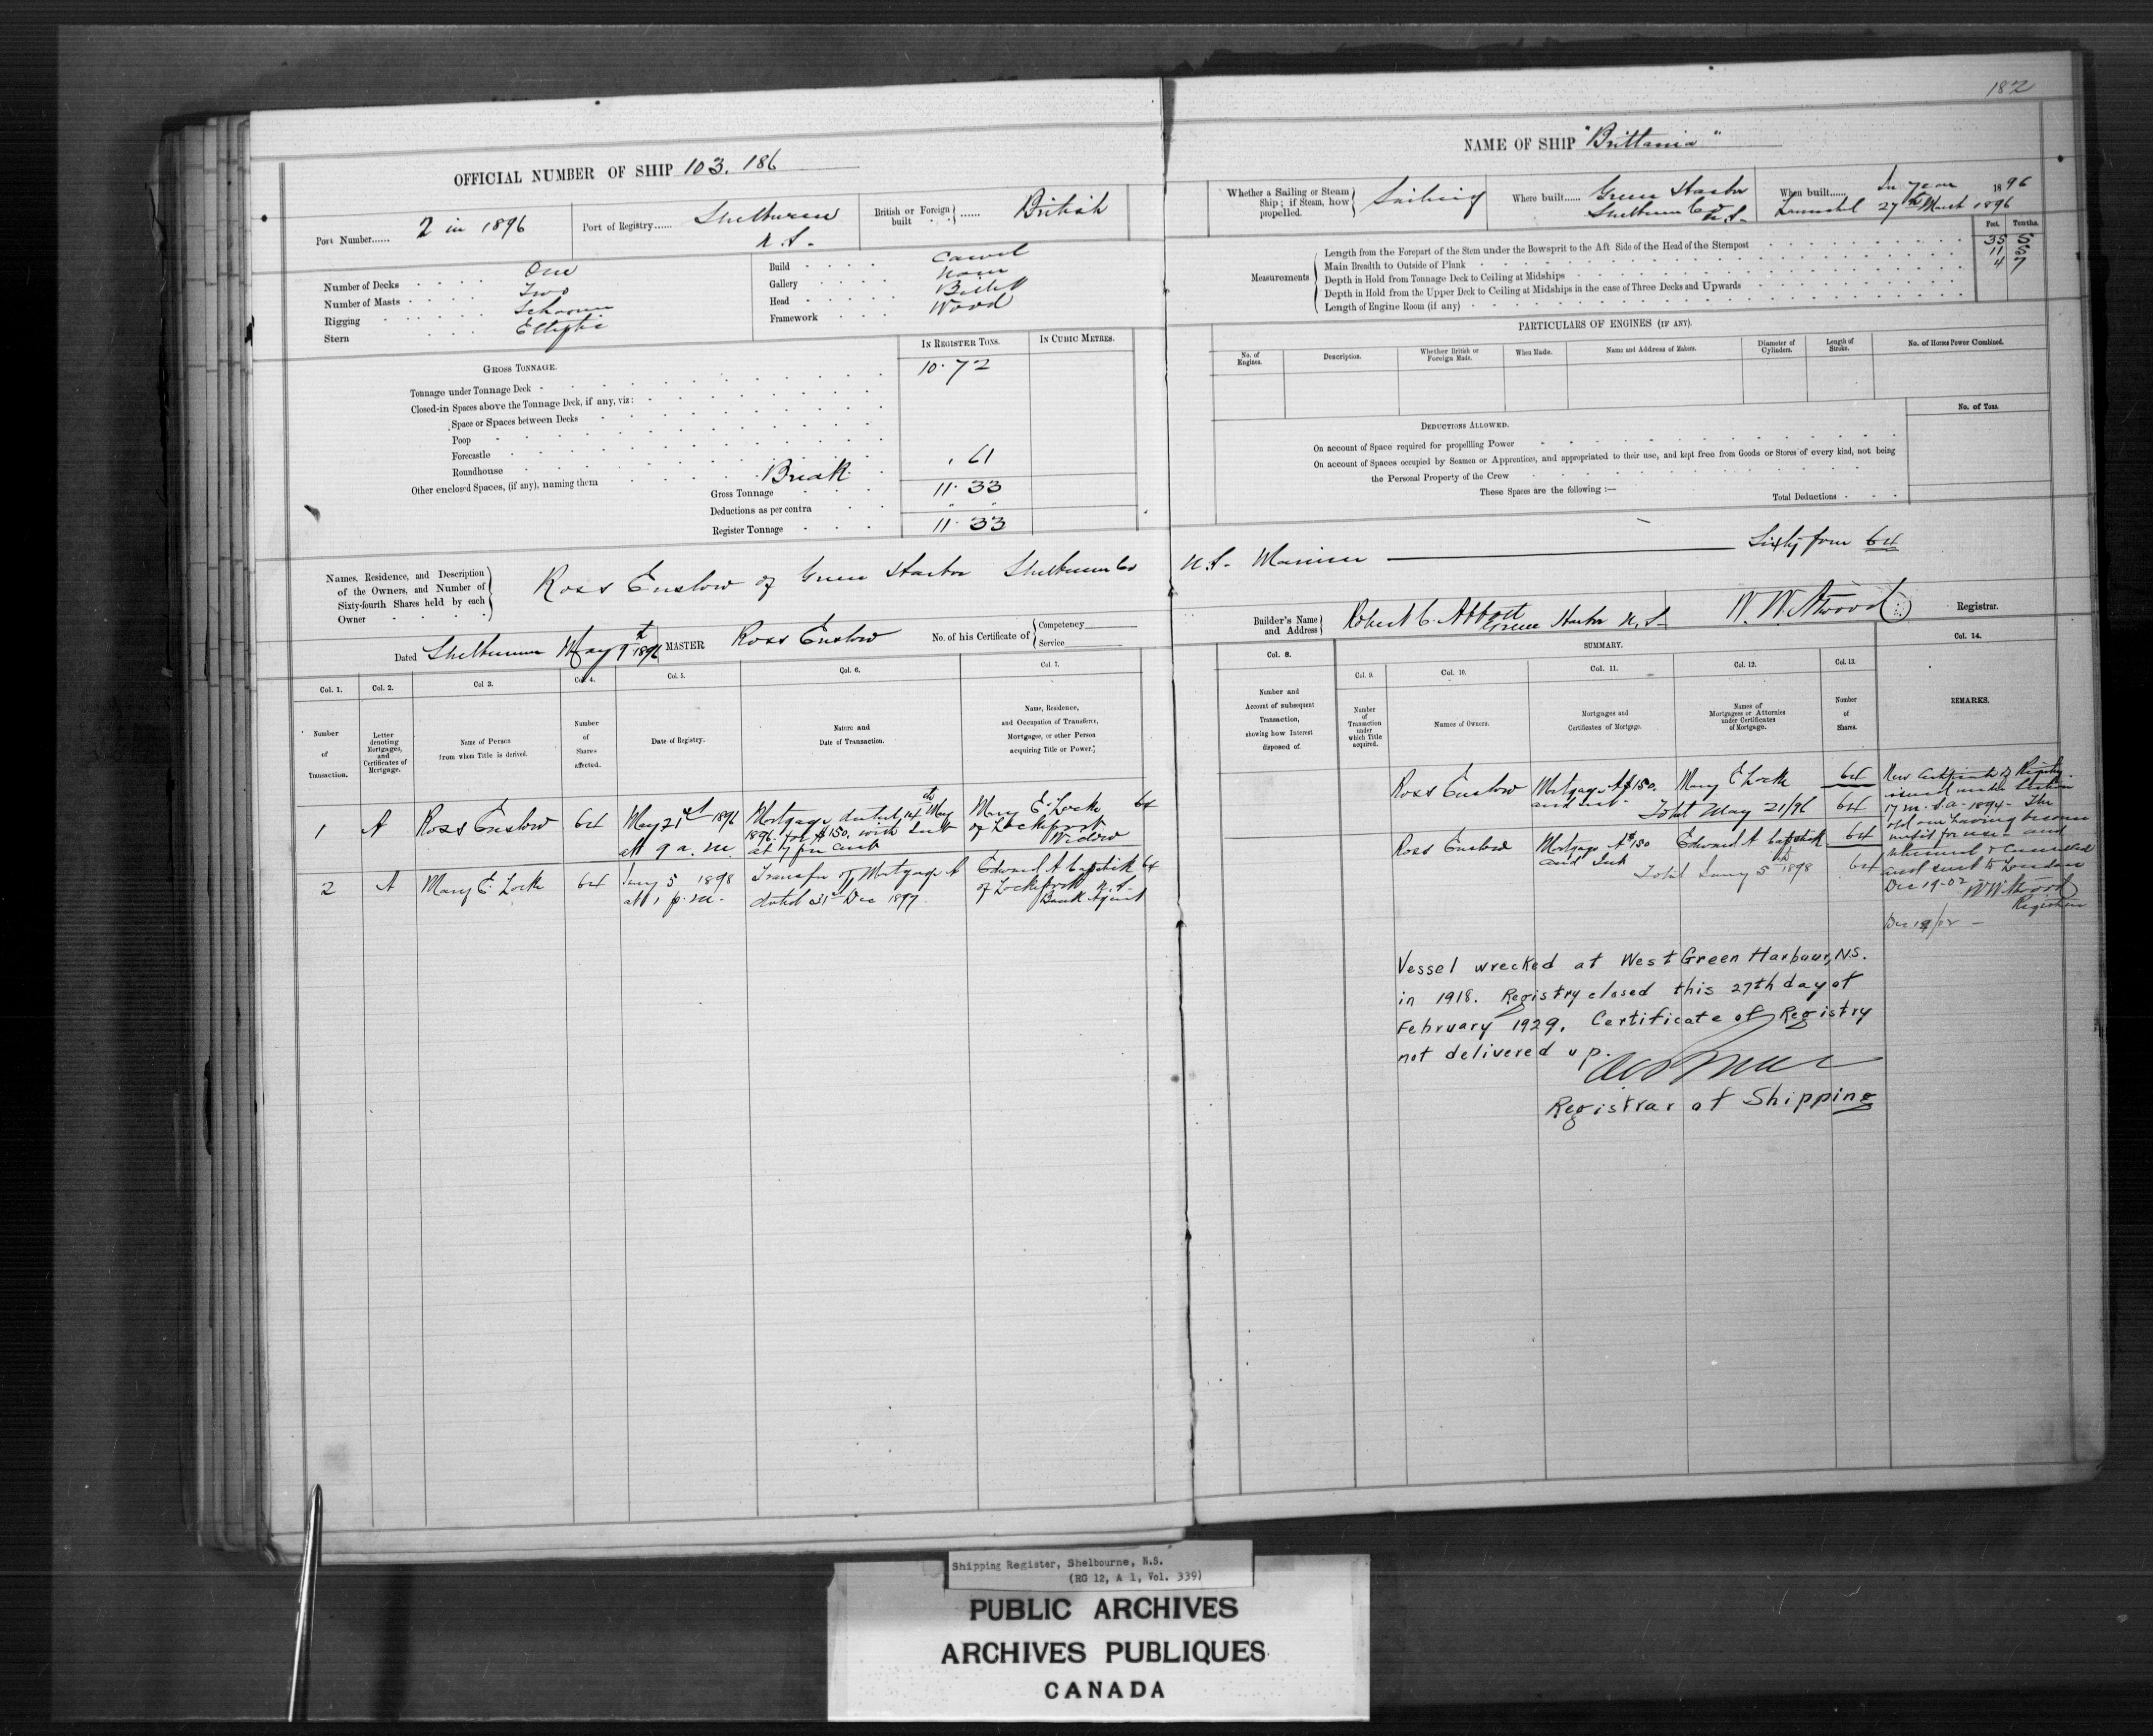 182
OFFICIAL NUMBER OF SHIP 103.186
NAME OF SHIP "Brittania"
Port Number...... 2 in 1896
Port of Registry...... Shelburne N.S.
British or Foreign built ...... British
Whether a Sailing or Steam Ship; if Steam, how propelled. Sailing
Where built...... Green Harbor Shelburne Co N.S.
When built...... In year 1896
Launched 27th March 1896
Number of Decks One
Number of Masts Two
Rigging Schooner
Stern Elliptic
Build Carvel
Gallery None
Head Billet
Framework Wood
Measurements
Feet. Tenths.
Length from the Forepart of the Stem under the Bowsprit to the Aft Side of the Head of the Sternpost 35 5
Main Breadth to Outside of Plank 11 8
Depth in Hold from Tonnage Deck to Ceiling at Midships 4 7
Depth in Hold from the Upper Deck to Ceiling at Midships in the case of Three Decks and Upwards
Length of Engine Room (if any)
GROSS TONNAGE.
IN REGISTER TONS.
IN CUBIC METRES.
Tonnage under Tonnage Deck 10.72
Closed-in Spaces above the Tonnage Deck, if any, viz:
Space or Spaces between Decks
Poop
Forecastle
Roundhouse
Other enclosed Spaces, (if any), naming them Break .61
Gross Tonnage 11.33
Deductions as per contra " "
Register Tonnage 11.33
PARTICULARS OF ENGINES (IF ANY).
No. of Engines.
Description.
Whether British or Foreign Made.
When Made.
Name and Address of Makers.
Diameter of Cylinders.
Length of Stroke.
No. of Horse Power Combined.
DEDUCTIONS ALLOWED.
No. of Tons.
On account of Space required for propelling Power
On account of Spaces occupied by Seamen or Apprentices, and appropriated to their use, and kept free from Goods or Stores of every kind, not being
the Personal Property of the Crew
These Spaces are the following :—
Total Deductions
Names, Residence, and Description of the Owners, and Number of Sixty-fourth Shares held by each Owner
Ross Enslow of Green Harbor Shelburne Co N.S. Mariner Sixty four 64
Dated Shelburne May 9th 1896
MASTER Ross Enslow
No. of his Certificate of Competency Service
Builder's Name and Address Robert C. Abbott Green Harbor N.S.
W. W. Atwood Registrar.
Col. 1. Number of Transaction.
Col. 2. Letter denoting Mortgages, and Certificates of Mortgage.
Col 3. Name of Person from whom Title is derived.
Col. 4. Number of Shares affected.
Col. 5. Date of Registry.
Col. 6. Nature and Date of Transaction.
Col. 7. Name, Residence, and Occupation of Transferee, Mortgagee, or other Person acquiring Title or Power.
Col. 8. Number and Account of subsequent Transaction, showing how Interest disposed of.
SUMMARY.
Col. 9. Number of Transaction under which Title acquired.
Col. 10. Names of Owners.
Col. 11. Mortgages and Certificates of Mortgage.
Col. 12. Names of Mortgagees or Attornies under Certificates of Mortgage.
Col. 13. Number of Shares.
Col. 14. REMARKS.
1 A Ross Enslow 64 May 21st 1896 at 9 a.m. Mortgage dated 14th May 1896 for $150. with Int at 7 per cent Mary E. Locke of Lockeport Widow 64
2 A Mary E. Locke 64 Jany 5 1898 at 1 p.m. Transfer of Mortgage A dated 31st Dec 1897. Edward A Capstick of Lockeport N.S. Bank Agent 64
Ross Enslow Mortgage A $150. and int. Mary E Locke 64
Total May 21/96 64
Ross Enslow Mortgage A $150 and Int Edward A Capstick 64
Total Jany 5th 1898 64
New Certificate of Registry
issued under Section
17 M.S.A. 1894 - The
old one having become
unfit for use - and
returned & Cancelled
and sent to London
Dec 19-02 W W Atwood
Registrar
Dec 19/02 -
Vessel wrecked at West Green Harbour, N.S.
in 1918. Registry closed this 27th day of
February 1929. Certificate of Registry
not delivered up.
Registrar of Shipping
Shipping Register, Shelbourne, N.S.
(RG 12, A 1, Vol. 339)
PUBLIC ARCHIVES
ARCHIVES PUBLIQUES
CANADA